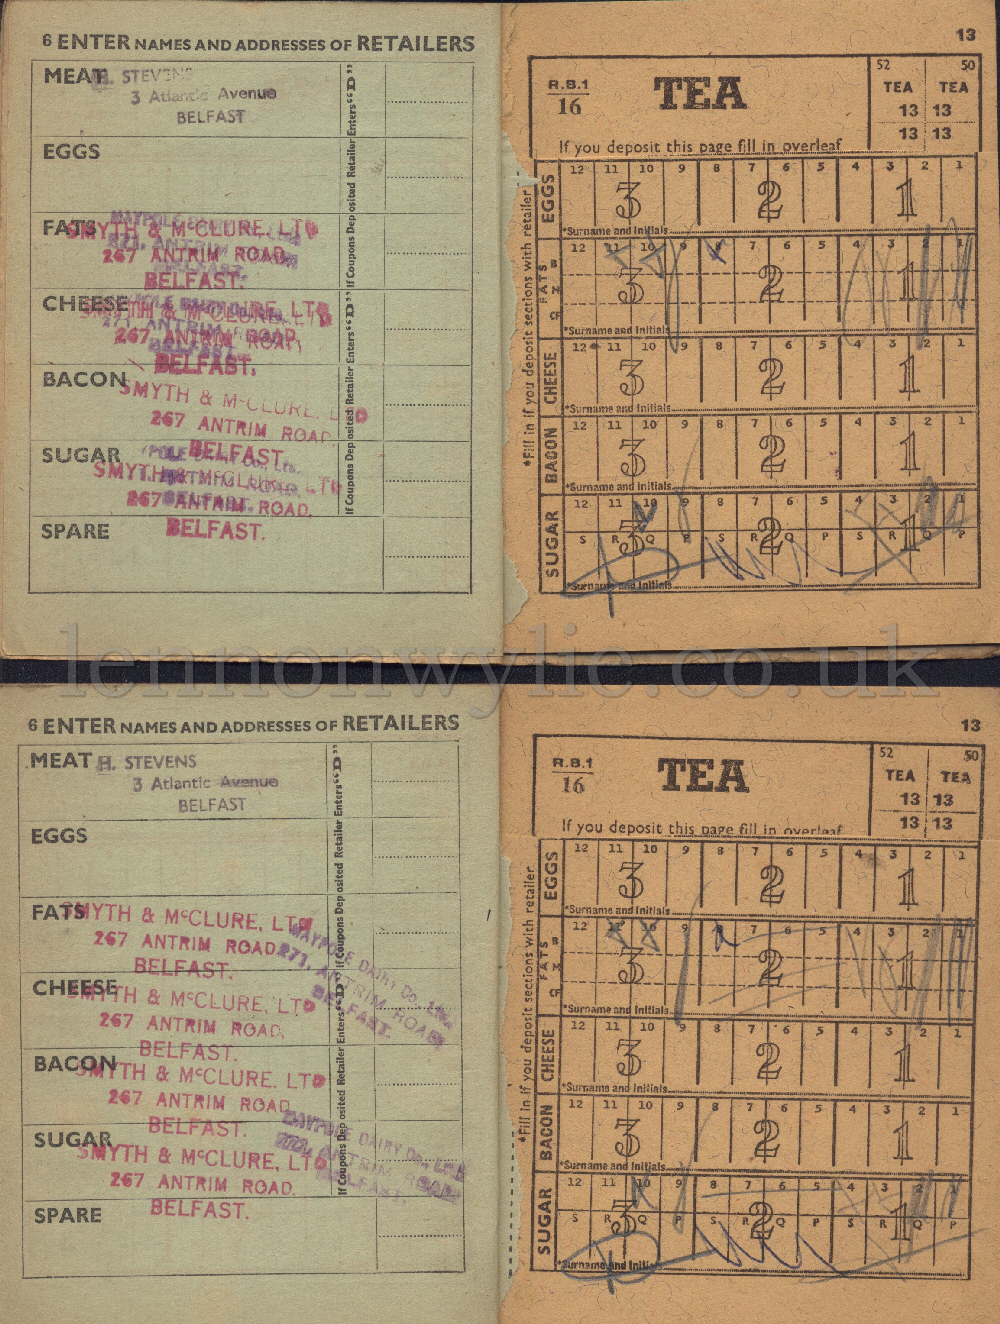 6 ENTER NAMES AND ADDRESSES OF RETAILERS
MEAT H. STEVENS
3 Atlantic Avenue
BELFAST
EGGS
FATS
SMYTH & McCLURE, LTD
267 ANTRIM ROAD,
BELFAST.
CHEESE
SMYTH & McCLURE, LTD
267 ANTRIM ROAD,
BELFAST.
BACON
SMYTH & McCLURE, LTD
267 ANTRIM ROAD,
BELFAST.
SUGAR
SMYTH & McCLURE, LTD
267 ANTRIM ROAD.
BELFAST.
SPARE
If Coupons Deposited Retailer Enters "D"
If Coupons Deposited Retailer Enters "D"
13
R.B.1
16
TEA
If you deposit this page fill in overleaf
52 50
TEA TEA
13 13
13 13
*Fill in if you deposit sections with retailer
EGGS
12 11 10 9 8 7 6 5 4 3 2 1
3 2 1
*Surname and Initials
FATS
B
M
CF
12 11 10 9 8 7 6 5 4 3 2 1
3 2 1
*Surname and Initials
CHEESE
12 11 10 9 8 7 6 5 4 3 2 1
3 2 1
*Surname and Initials
BACON
12 11 10 9 8 7 6 5 4 3 2 1
3 2 1
*Surname and Initials
SUGAR
12 11 10 9 8 7 6 5 4 3 2 1
S R Q P S R Q P S R Q P
3 2 1
*Surname and Initials
lennonwylie.co.uk
6 ENTER NAMES AND ADDRESSES OF RETAILERS
MEAT H. STEVENS
3 Atlantic Avenue
BELFAST
EGGS
FATS
SMYTH & McCLURE, LTD
267 ANTRIM ROAD,
BELFAST.
MAYPOLE DAIRY Co., Ltd.
271, ANTRIM ROAD
BELFAST.
CHEESE
SMYTH & McCLURE, LTD
267 ANTRIM ROAD,
BELFAST.
BACON
SMYTH & McCLURE, LTD
267 ANTRIM ROAD
BELFAST.
SUGAR
SMYTH & McCLURE, LTD
267 ANTRIM ROAD.
BELFAST.
MAYPOLE DAIRY Co., Ltd.
ANTRIM ROAD
BELFAST.
SPARE
If Coupons Deposited Retailer Enters "D"
If Coupons Deposited Retailer Enters "D"
13
R.B.1
16
TEA
If you deposit this page fill in overleaf
52 50
TEA TEA
13 13
13 13
*Fill in if you deposit sections with retailer
EGGS
12 11 10 9 8 7 6 5 4 3 2 1
3 2 1
*Surname and Initials
FATS
B
M
CF
12 11 10 9 8 7 6 5 4 3 2 1
3 2 1
*Surname and Initials
CHEESE
12 11 10 9 8 7 6 5 4 3 2 1
3 2 1
*Surname and Initials
BACON
12 11 10 9 8 7 6 5 4 3 2 1
3 2 1
*Surname and Initials
SUGAR
12 11 10 9 8 7 6 5 4 3 2 1
S R Q P S R Q P S R Q P
3 2 1
*Surname and Initials